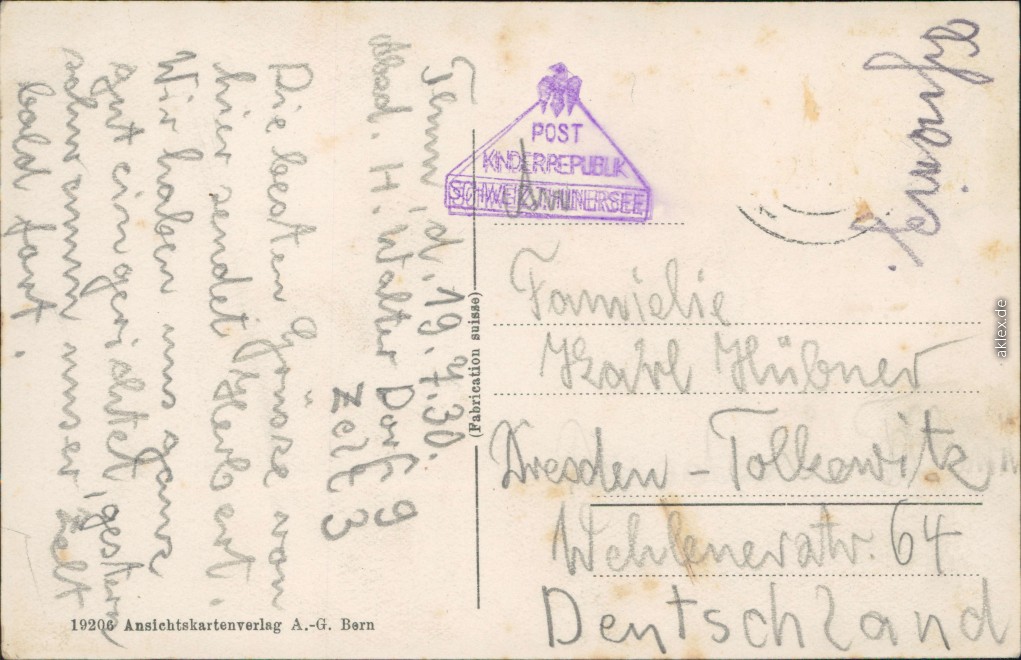 Thun, d. 19.7.30.
Absd. H. Walter Dorf 9
Zelt 3
Die besten Grüsse von
hier sendet Herbert.
Wir haben uns ganz
gut eingerichtet, gestern
schwamm unser Zelt
bald fort.
POST
KINDERREPUBLIK
SCHWEIZ THUNERSEE
Famielie
Karl Hübner
Dresden - Tolkewitz
Wehlenerstr. 64
Deutschland
(Fabrication suisse)
19206 Ansichtskartenverlag A.-G. Bern
aklex.de